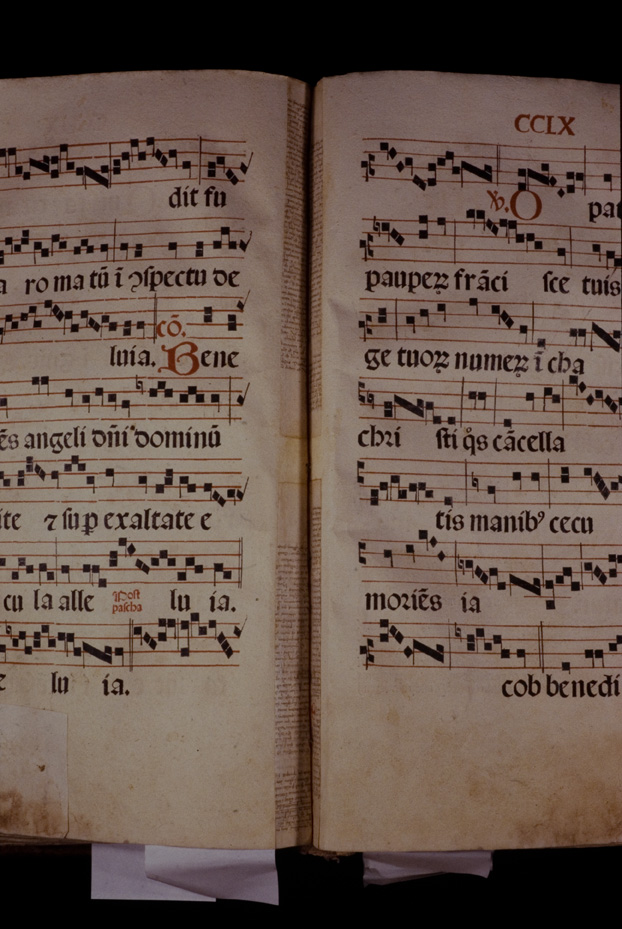 dit fu
a ro ma tũ ĩ ɔspectu de
luia. cõ. Bene
ẽs angeli dñi dominũ
ite ⁊ suꝑ exaltate e
cu la alle Post pascha lu ia.
e lu ia.
CCLX
℣. O pat
pauperꝝ frãci sce tuis
ge tuoꝝ numerꝝ ĩ cha
chri sti q̊s cãcella
tis manibꝰ cecu
moriẽs ia
cob benedi